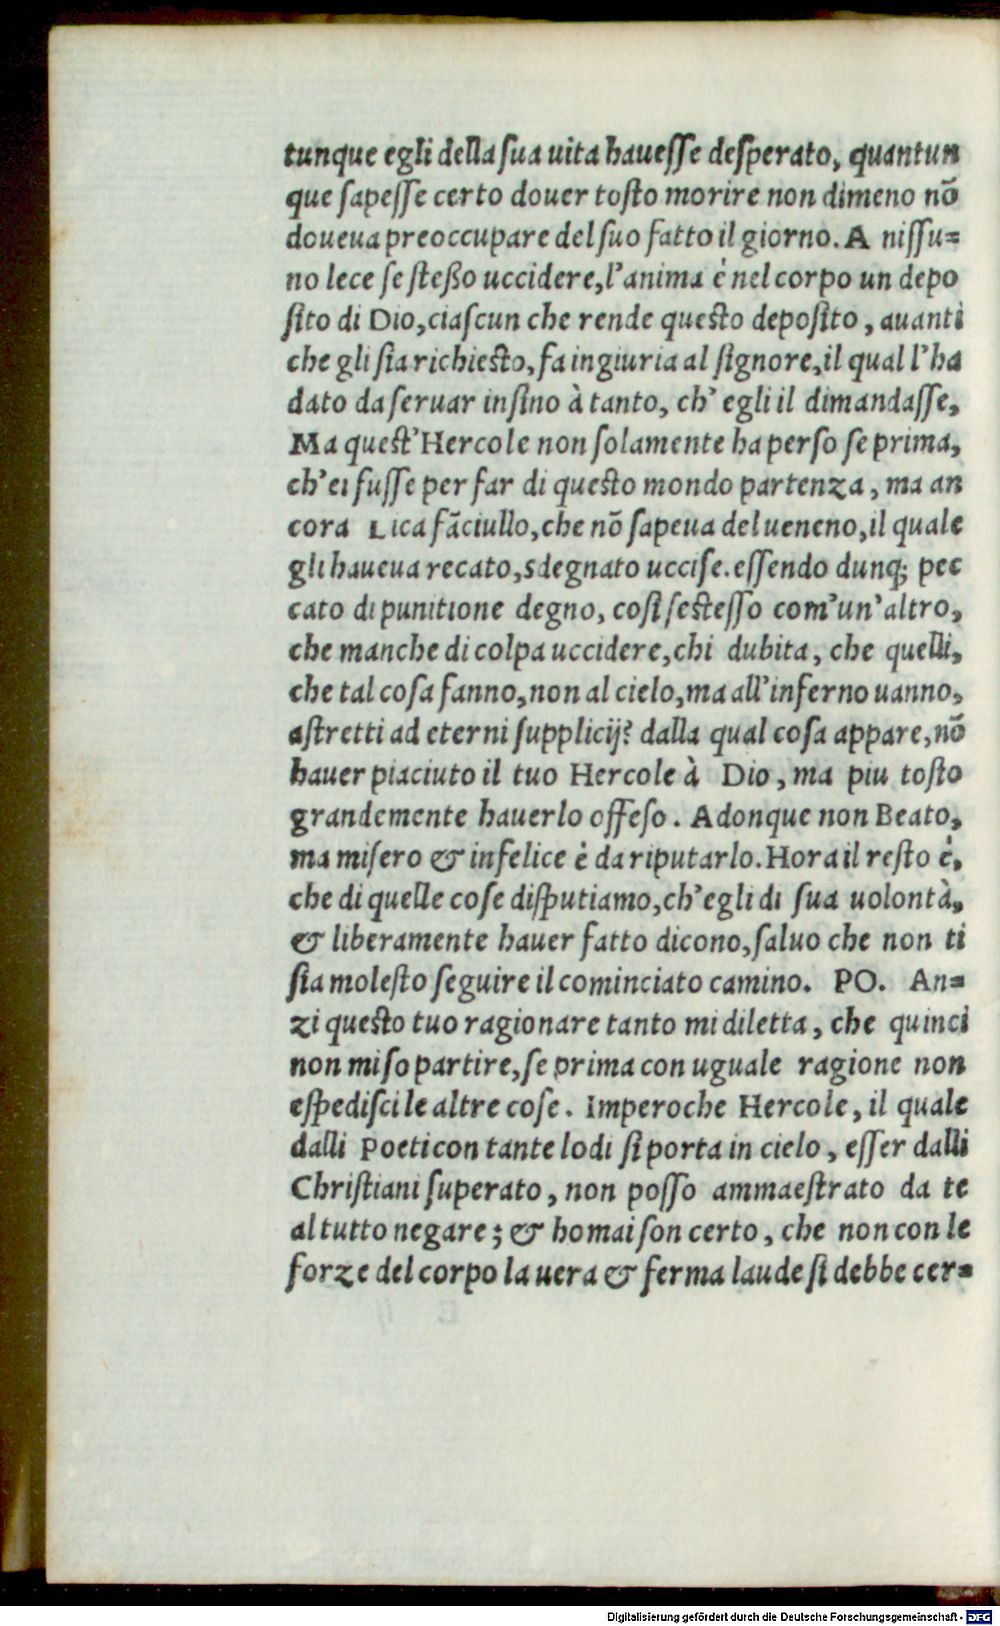 tunque egli della ſua uita haueſſe deſperato, quantun
que ſapeſſe certo douer toſto morire non dimeno nō
doueua preoccupare del ſuo fatto il giorno. A niſſu=
no lece ſe ſteßo uccidere, l'anima è nel corpo un depo
ſito di Dio, ciaſcun che rende queſto depoſito, auanti
che gli ſia richieſto, fa ingiuria al ſignore, il qual l'ha
dato da ſeruar inſino à tanto, ch' egli il dimandaſſe,
Ma queſt'Hercole non ſolamente ha perſo ſe prima,
ch'ei fuſſe per far di queſto mondo partenza, ma an
cora Lica fāciullo, che nō ſapeua del ueneno, il quale
gli haueua recato, sdegnato ucciſe. eſſendo dunq; pec
cato di punitione degno, coſi ſe ſteſſo com'un'altro,
che manche di colpa uccidere, chi dubita, che quelli,
che tal coſa fanno, non al cielo, ma all'inferno uanno,
aſtretti ad eterni ſupplicij? dalla qual coſa appare, nō
hauer piaciuto il tuo Hercole à Dio, ma piu toſto
grandemente hauerlo offeſo. Adonque non Beato,
ma miſero & infelice è da riputarlo. Hora il reſto è,
che di quelle coſe diſputiamo, ch'egli di ſua uolontà,
& liberamente hauer fatto dicono, ſaluo che non ti
ſia moleſto ſeguire il cominciato camino. PO. An=
zi queſto tuo ragionare tanto mi diletta, che quinci
non mi ſo partire, ſe prima con uguale ragione non
eſpediſci le altre coſe. Imperoche Hercole, il quale
dalli Poeti con tante lodi ſi porta in cielo, eſſer dalli
Chriſtiani ſuperato, non poſſo ammaeſtrato da te
al tutto negare; & homai ſon certo, che non con le
forze del corpo la uera & ferma laude ſi debbe cer=
Digitalisierung gefördert durch die Deutsche Forschungsgemeinschaft - DFG